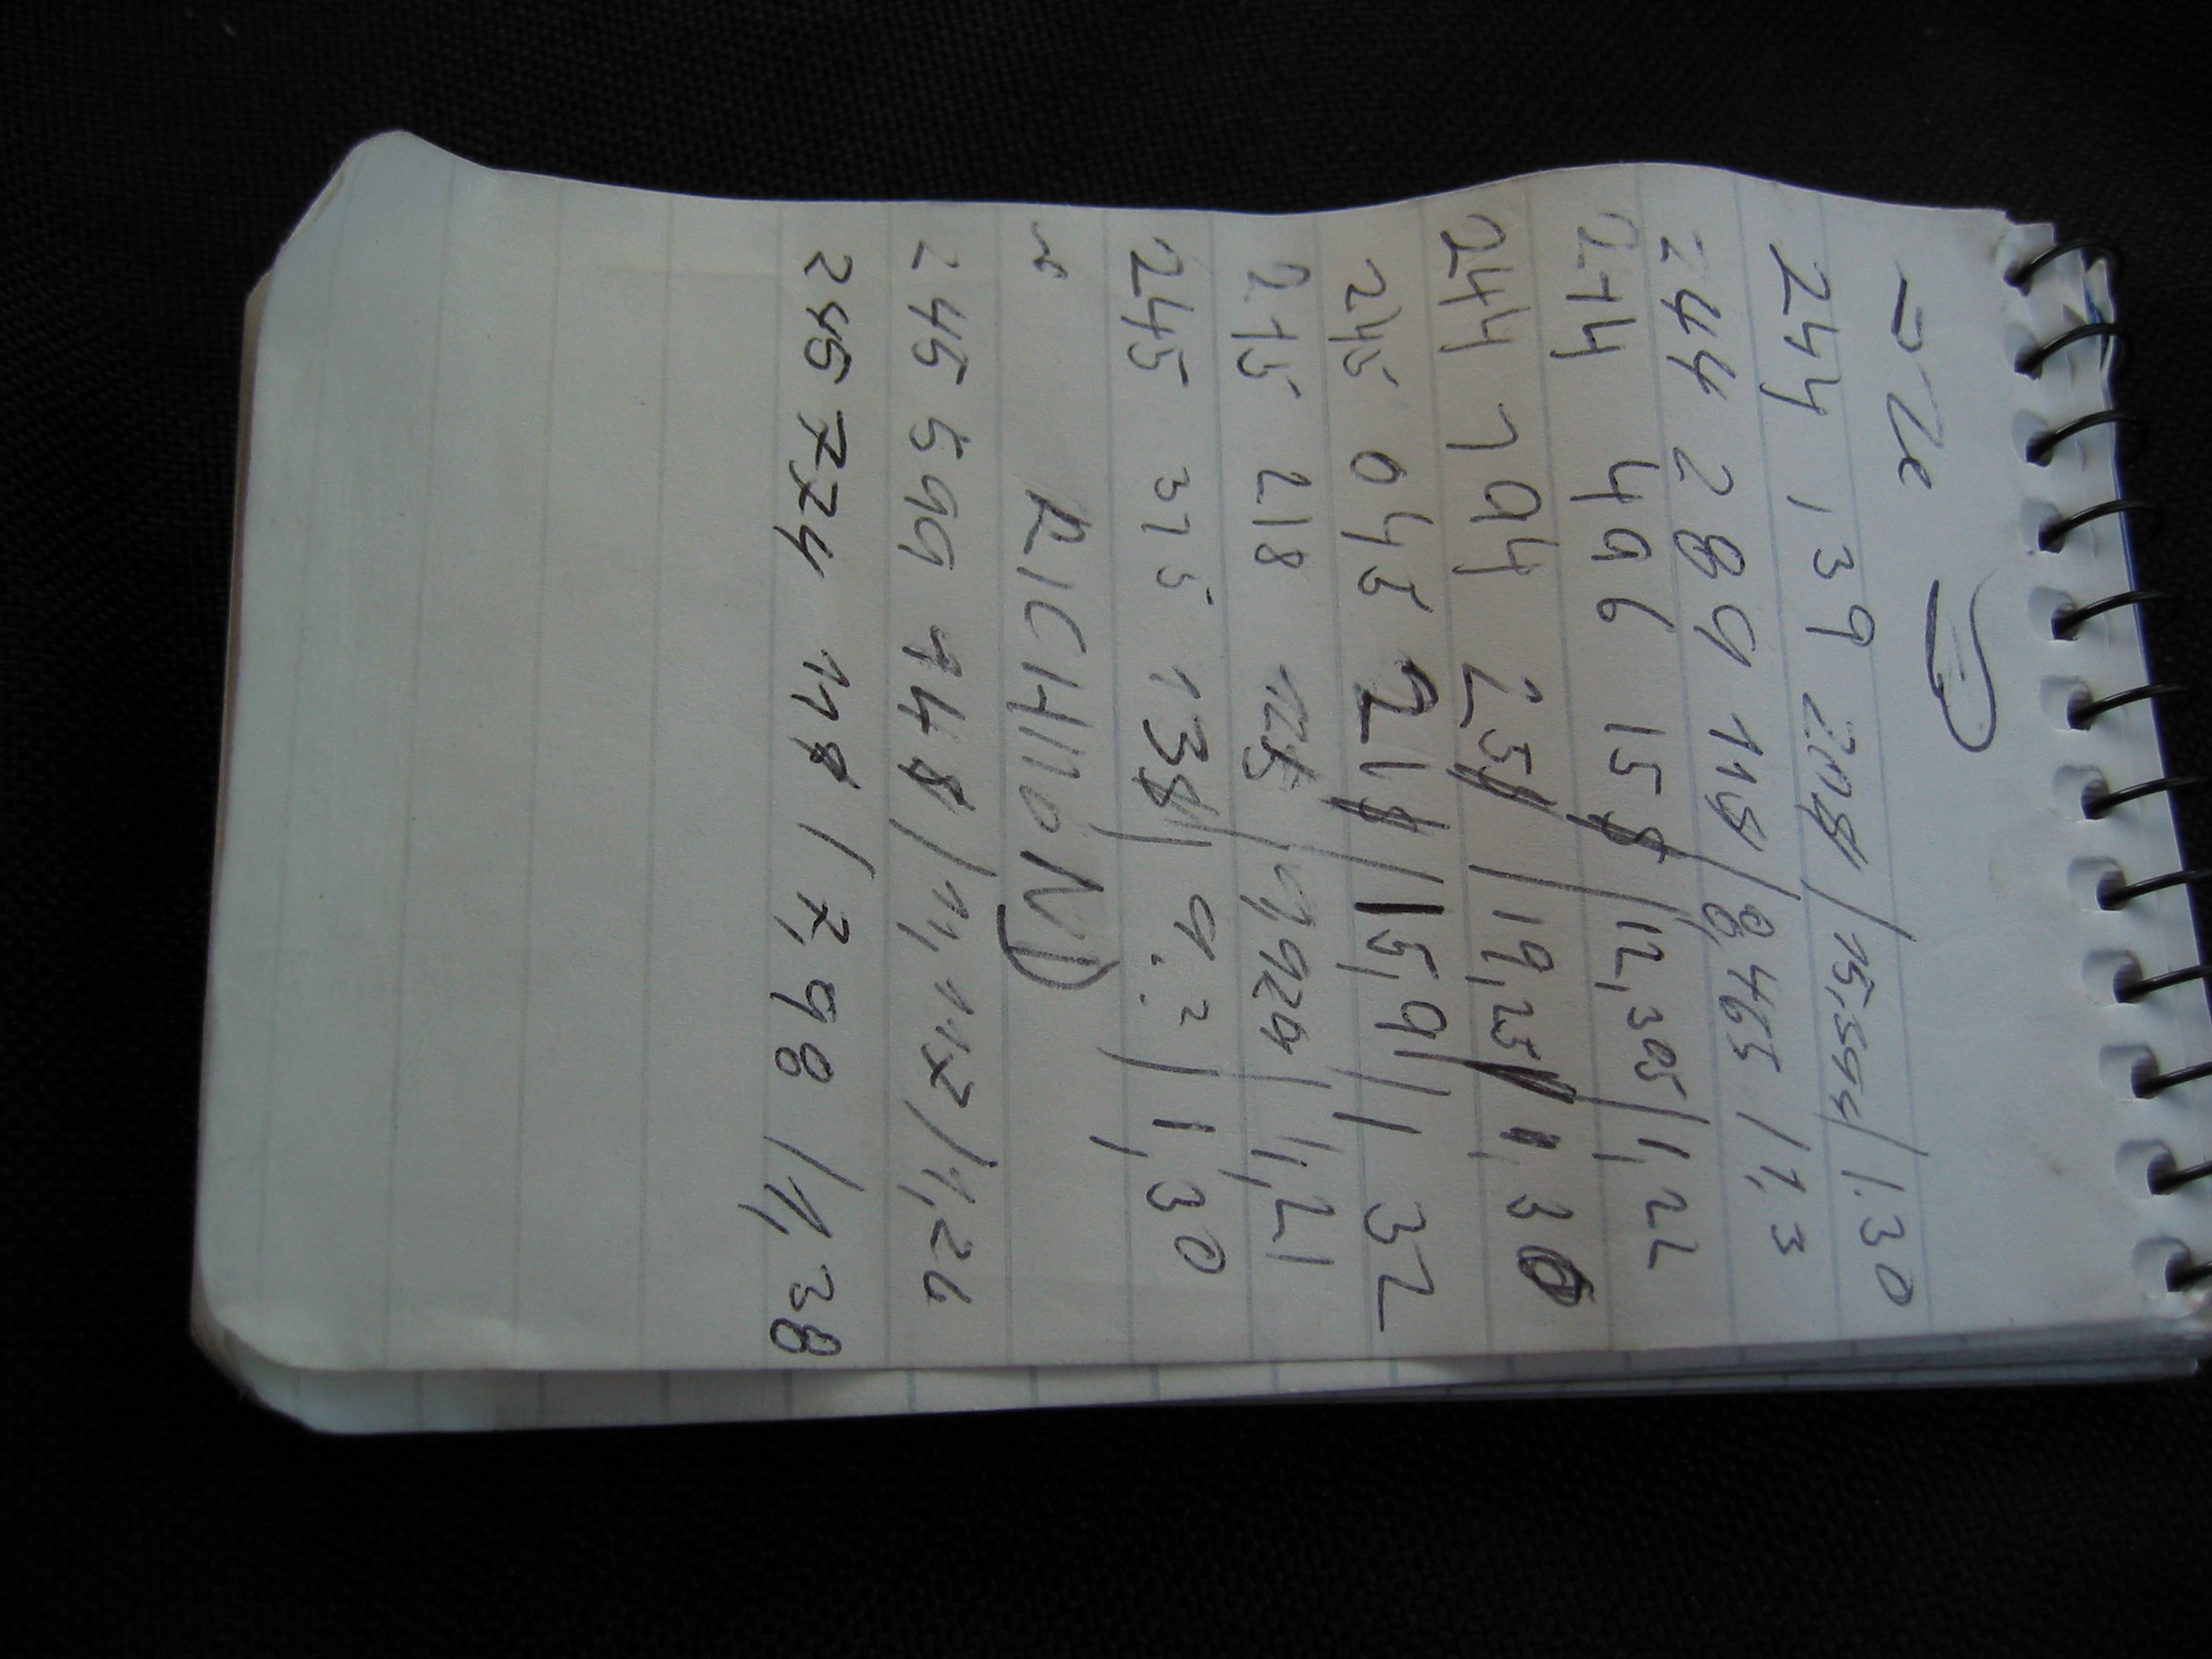 244 139 20$ / 15,594 / 1.30
244 289 11$ / 8,465 / 1,3
244 496 15$ / 12,305 / 1,22
244 794 25$ / 19,25 / 1,30
245 045 21$ / 15,91 / 1 32
245 218 12$ / 9,924 / 1,21
245 375 13$ / 9.? / 1,30
RICHMOND
245 599 14$ / 11,117 / 1,26
245 774 11$ / 7,98 / 1,38